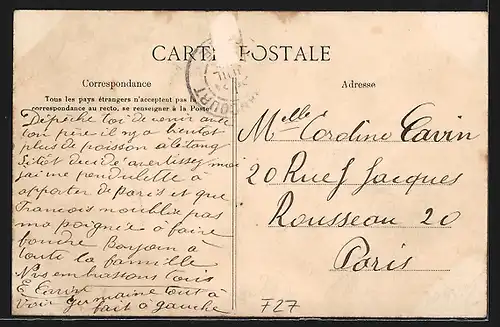 CARTE POSTALE
Correspondance
Tous les pays étrangers n'acceptent pas la
correspondance au recto, se renseigner à la Poste
Dépêche toi de venir avec
ton père il n'y a bientot
plus de poisson à l'étang
Sitot decidé avertissez moi
j'ai une pendulette à
apporter de Paris et que
Francois n'oublie pas
ma poignée à faire
fondre Bonjour à
toute la famille
Nous embrassons tous
E
voir Germaine tout à
fait à gauche
Adresse
Melle Cordline Cavin
20 Rue J Jacques
Rousseau 20
Paris
F27